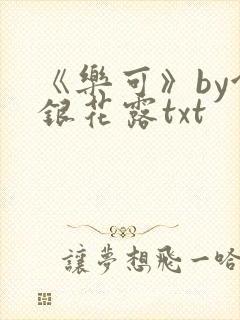 《樂可》by
銀花露txt
讓夢想飛一哈